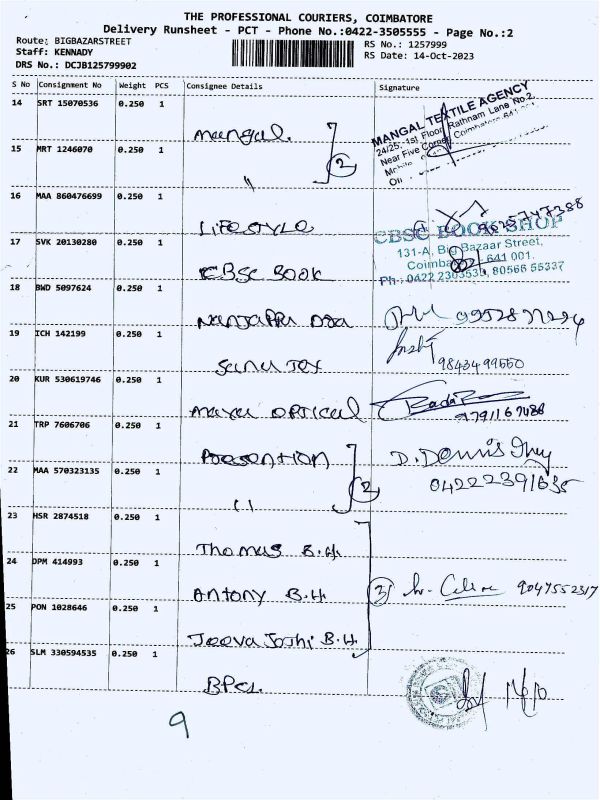 THE PROFESSIONAL COURIERS, COIMBATORE
Delivery Runsheet - PCT - Phone No.:0422-3505555 - Page No.:2
Route: BIGBAZARSTREET
RS No.: 1257999
Staff: KENNADY
RS Date: 14-Oct-2023
DRS No.: DCJB125799902
S No Consignment No Weight PCS Consignee Details Signature
14 SRT 15070536 0.250 1
Mangal.
MANGAL TEXTILE AGENCY
24/25, 1st Floor, Rathnam Lane No.2,
Near Five Corner, Coimbatore-641
15 MRT 1246070 0.250 1
"
2
16 MAA 860476699 0.250 1
LIFESTYLE
17 SVK 20130280 0.250 1
CBSC BOOK
CBSC BOOK SHOP
131-A, Big Bazaar Street,
Coimbatore 641 001.
Ph : 0422 2303533, 80566 55337
18 BWD 5097624 0.250 1
19 ICH 142199 0.250 1
9843499550
20 KUR 530619746 0.250 1
OPTICAL
9791167488
21 TRP 7606706 0.250 1
22 MAA 570323135 0.250 1
2
04222391635
23 HSR 2874518 0.250 1
Thomas B.H.
24 DPM 414993 0.250 1
Antony B.H.
3
9047552317
25 PON 1028646 0.250 1
Jeeva Jothi B.H
26 SLM 330594535 0.250 1
BPCL
9